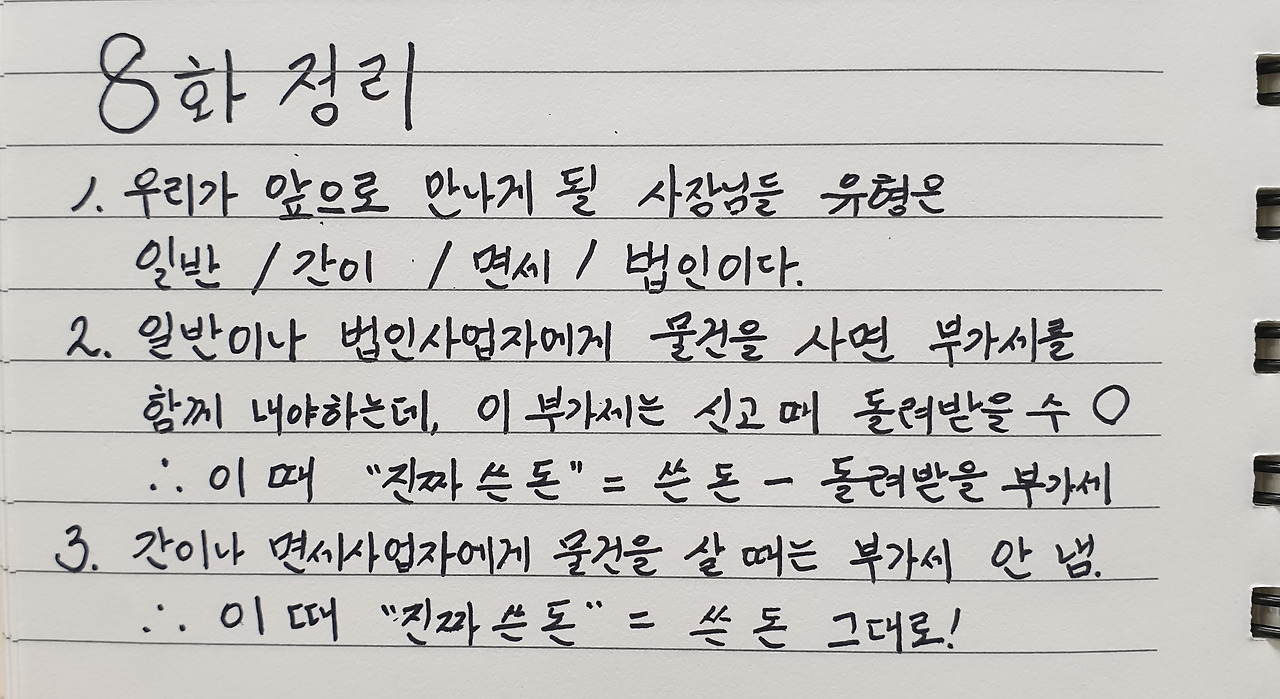 8화 정리
1. 우리가 앞으로 만나게 될 사장님들 유형은
일반 / 간이 / 면세 / 법인이다.
2. 일반이나 법인사업자에게 물건을 사면 부가세를
함께 내야하는데, 이 부가세는 신고 때 돌려받을 수 O
∴ 이 때 "진짜 쓴 돈" = 쓴 돈 - 돌려받을 부가세
3. 간이나 면세사업자에게 물건을 살 때는 부가세 안 냄.
∴ 이 때 "진짜 쓴 돈" = 쓴 돈 그대로!